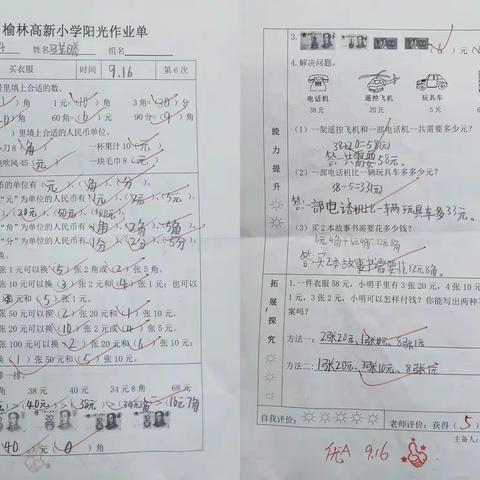 榆林高新小学阳光作业单
姓名 组名
买衣服 时间 9.16 第 6 次
号里填上合适的数。
)角 1元=(10)角 3角=(30)分
)角 60分=(6)角 90分=(9)角
)里填上合适的人民币单位。
小刀8(角) 一杯果汁10(元)
电吹风45(元) 一块毛巾8(元)
币的单位有(元)、(角)、(分)。
“元”为单位的人民币有(1元)、(2元)、(5元)、
(20元)、(50元)、
“角”为单位的人民币有(1角)、(2角)、(5角)。
“分”为单位的人民币有(1分)、(2分)、(5分)。
张1元可以换(5)张2角或(2)张5角。
张10元可以换(3)张2元和(4)张1元。
元和(5)张1元。
张50元可以换(2)张20元和(1)张10元。
张20元可以换(10)张2元或(4)张5元。
张100元可以换(2)张20元和(6)张10元。
换(1)张50元和(5)张10元。
排一排。
角 38元 40元 34元8角 68元
(40)元(0)角
3.
4.解决问题。
电话机 遥控飞机 玩具车
38元 20元 5元
能力提升
(1)一架遥控飞机和一部电话机一共需要多少元?
38+20=58(元)
答:共需要58元。
(2)一部电话机比一辆玩具车多多少元?
38-5=33(元)
答:一部电话机比一辆玩具车多33元。
(3)买2本故事书需要花多少钱?
答:买2本故事书需要花12元8角。
拓展探究
1.一件衣服58元,小明手里有3张20元,4张10元
1元,3张2元,小明可以怎样付钱?你能写出两种不
案吗?
方法一:2张20元,1张10元,8张1元
方法二:1张20元,3张10元,8张1元
自我评价: 老师评价:获得(5)
主备人:
优A 9.16